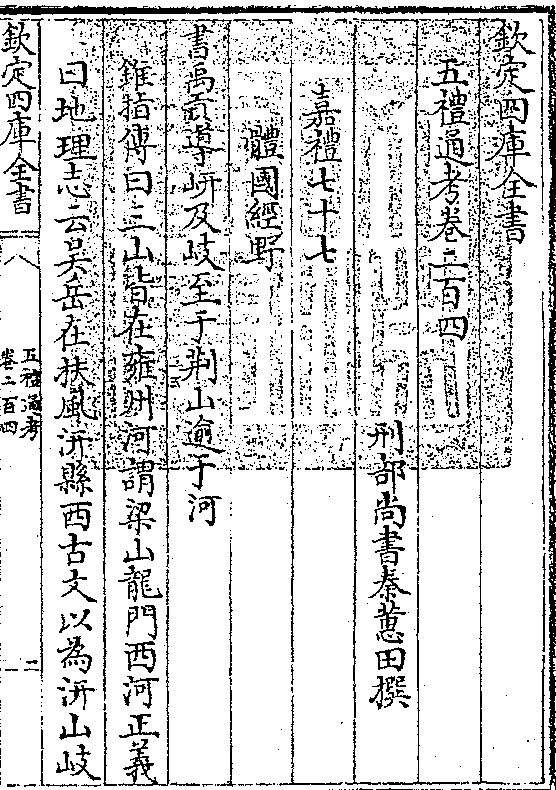 欽定四庫全書
五禮通考卷二百四
刑部尚書秦蕙田撰
嘉禮七十七
體國經野
書禹貢導岍及岐至于荆山逾于河
錐指傳曰三山皆在雍州河謂梁山龍門西河正義
曰地理志云吳岳在扶風汧縣西古文以為汧山岐
欽定四庫全書
五禮通考
卷二百四